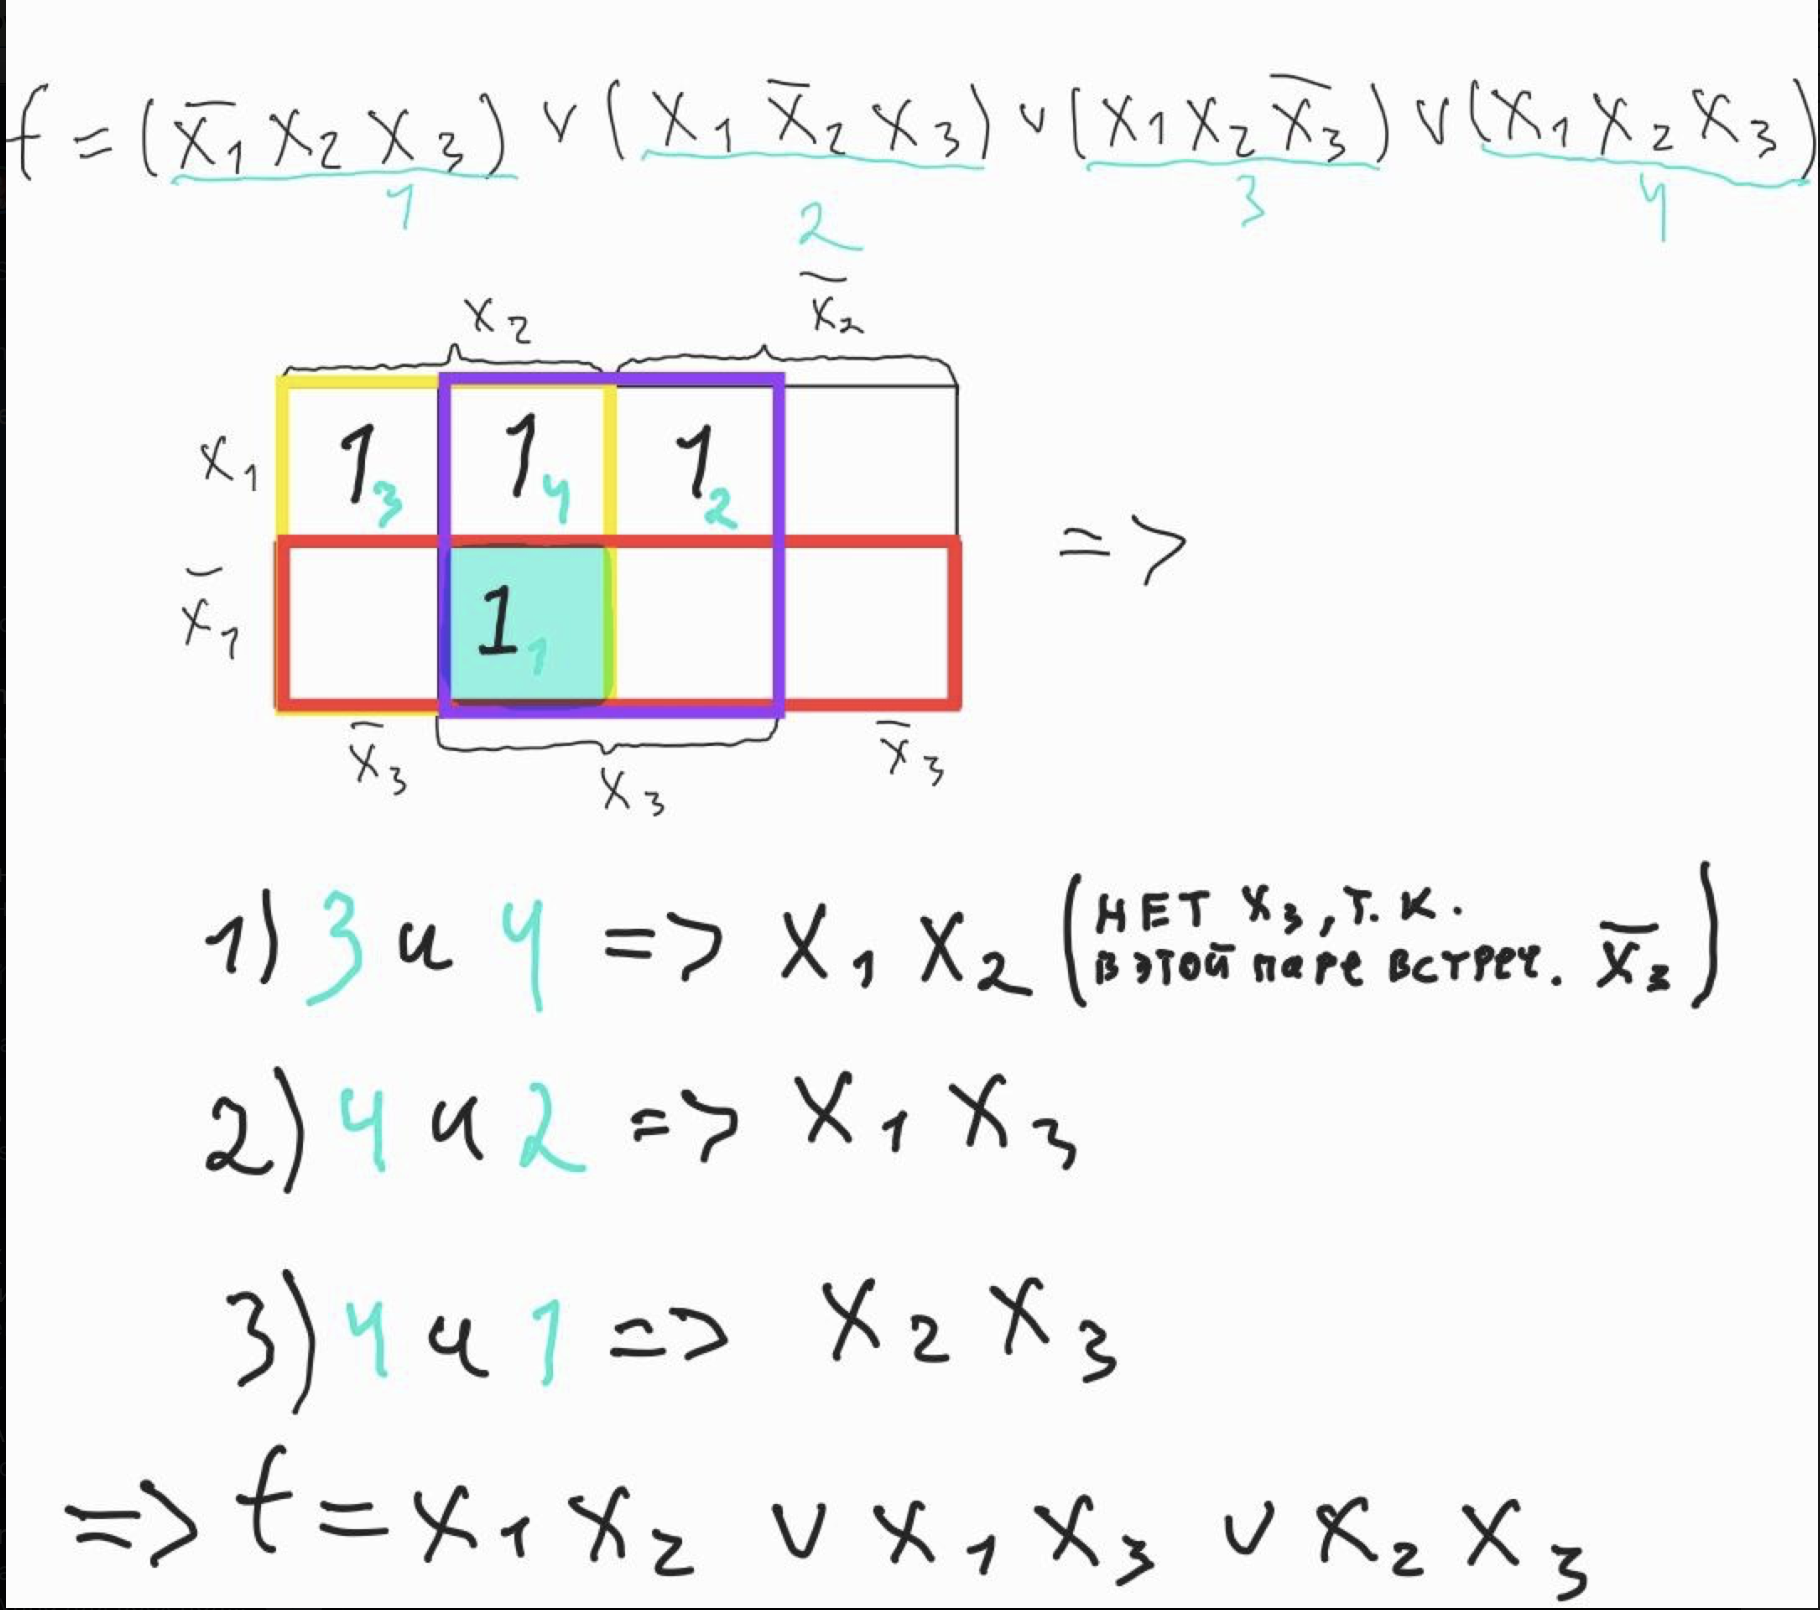 f = (x̄₁ x₂ x₃) ∨ (x₁ x̄₂ x₃) ∨ (x₁ x₂ x̄₃) ∨ (x₁ x₂ x₃)
1 2 3 4
x₂ x̄₂
x₁ 1 3 1 4 1 2
=>
x̄₁ 1 1
x̄₃ x₃ x̄₃
1) 3 и 4 => x₁ x₂ (НЕТ x₃, т. к.
в этой паре встреч. x̄₃)
2) 4 и 2 => x₁ x₃
3) 4 и 1 => x₂ x₃
=> f = x₁ x₂ ∨ x₁ x₃ ∨ x₂ x₃